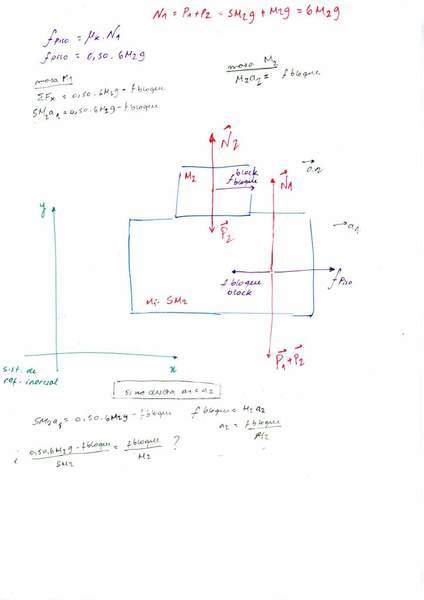 N₁ = P₁+P₂ = 5M₂g + M₂g = 6M₂g
f piso = μk . N₁
f piso = 0,50 . 6M₂g
masa M₁
ΣFx = 0,50 . 6M₂g - f bloque
5M₂a₁ = 0,50 . 6M₂g - f bloque
masa M₂
M₂a₂ = f bloque
N₂
M₂
f block bloque
a₂
N₁
P₂
a₁
y
f bloque block
f piso
M₁ = 5M₂
P₁+P₂
x
sist. de ref. inercial
si no desliza a₁ = a₂
5M₂a₁ = 0,50 . 6M₂g - f bloque f bloque = M₂ a₂
a₂ = f bloque / M₂
¿ 0,50.6M₂g - f bloque / 5M₂ = f bloque / M₂ ?